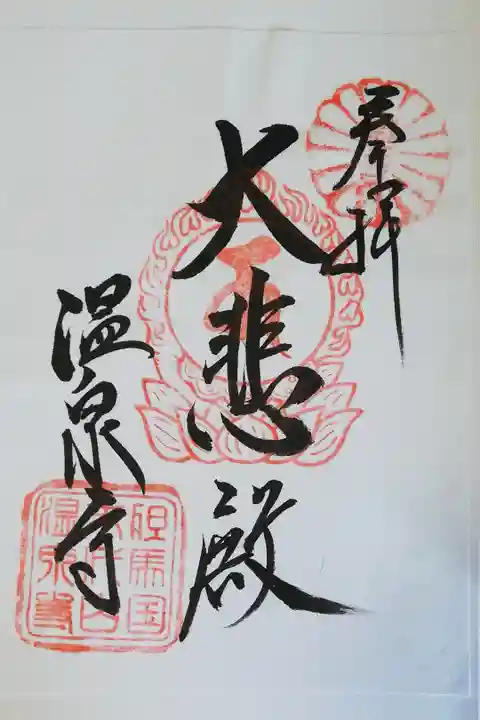 奉拝
大悲殿
温泉寺
但馬国
城崎山
温泉寺